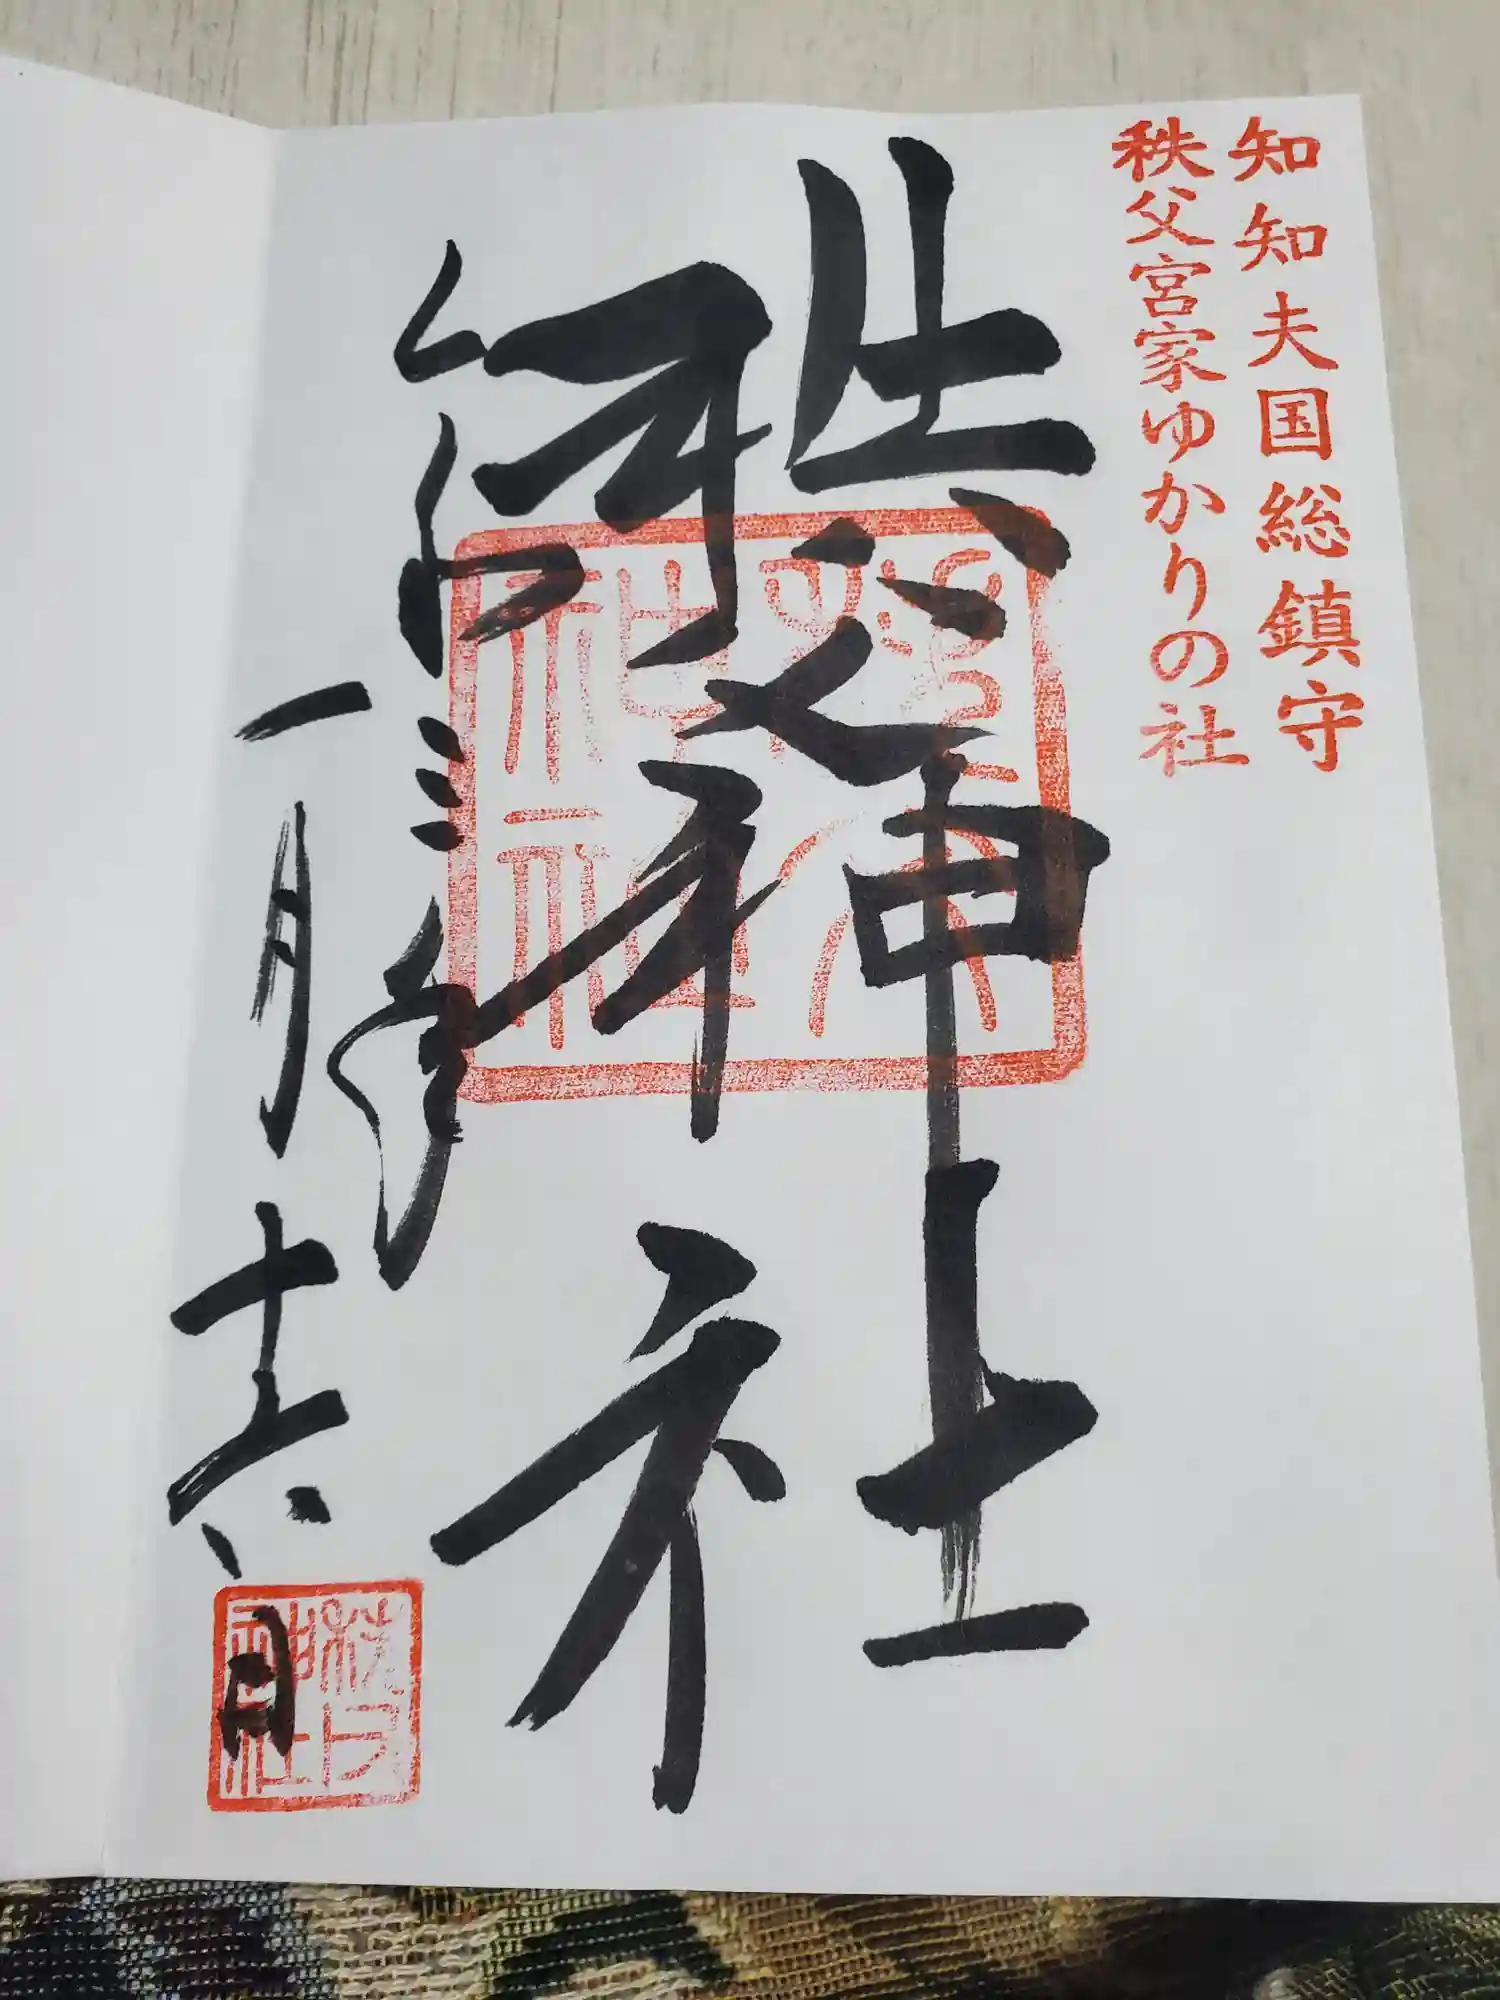 知知夫国総鎮守
秩父宮家ゆかりの社
秩父神社
令和三年
一月十六日
秩父
神社